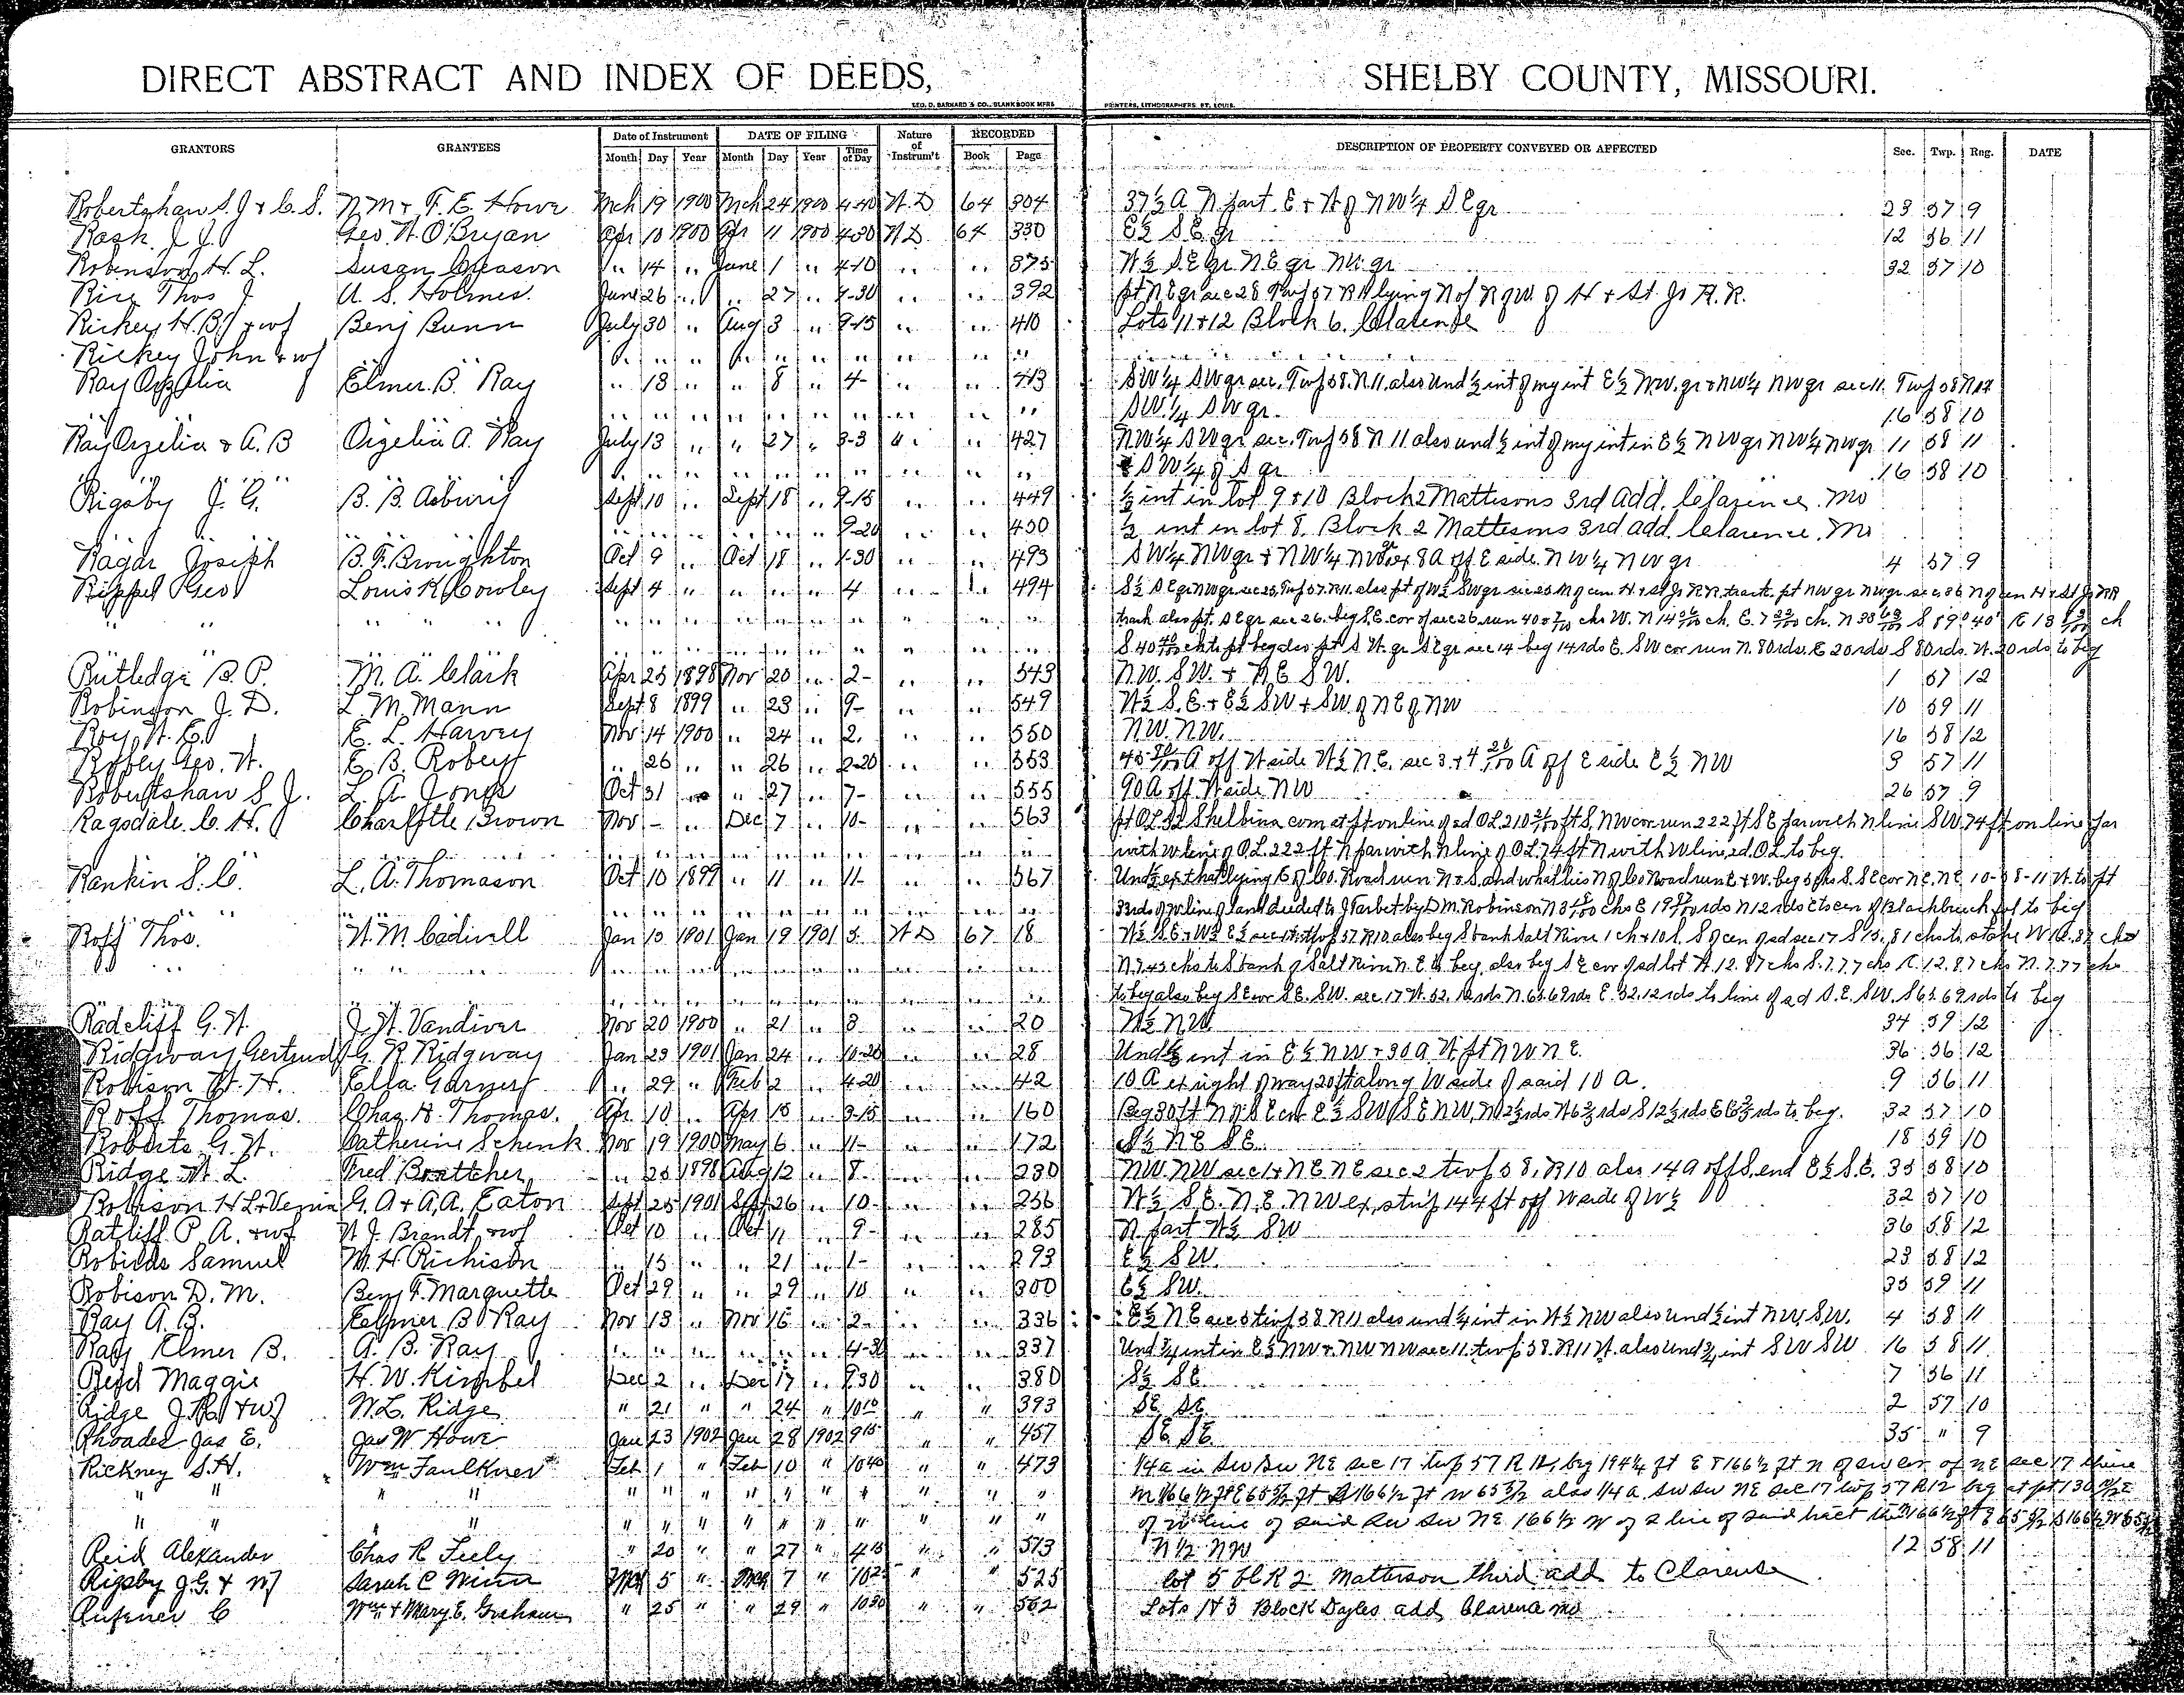 DIRECT ABSTRACT AND INDEX OF DEEDS, SHELBY COUNTY, MISSOURI.
GEO. D. BARNARD & CO., BLANK BOOK MFRS PRINTERS, LITHOGRAPHERS, ST. LOUIS.
GRANTORS GRANTEES Date of Instrument DATE OF FILING Nature of Instrum't RECORDED DESCRIPTION OF PROPERTY CONVEYED OR AFFECTED Sec. Twp. Rng. DATE
Month Day Year Month Day Year Time of Day Book Page
Robertshaw S. J & C. S. N M & F. E. Howe Mch 19 1900 Mch 24 1900 4-40 W. D 64 304 37½ A N part E & W of NW¼ S E qr 23 57 9
Rask J J Geo. W. O'Bryan Apr 10 1900 Apr 11 1900 4-30 W D 64 330 E½ S. E. qr 12 56 11
Robinson H. L. Susan Gleason " 14 " June 1 " 4-10 " " 375 W½ S. E qr N. E qr NW qr 32 57 10
Rice Thos J U. S. Holmes June 26 " " 27 " 1-30 " " 392 pt N E qr sec 28 Twp 57 R 11 lying N of R of W. of H & St. Jo R. R.
Rickey H. B. & wf Benj Bunn July 30 " Aug 3 " 9-15 " " 410 Lots 11 & 12 Block 6. Clarence
Rickey John & wf " " " " " " " " " " "
Ray Orzelia Elmer B. Ray " 13 " " 8 " 4- " " 413 SW¼ SW qr sec. Twp 58. R 11. also Und ½ int of my int E½ NW. qr & NW¼ NW qr sec 11. Twp 58
" " " " " " " " " " " SW.¼ SW qr. 16 58 10
Ray Orzelia & A. B Orzelia A. Ray July 13 " " 27 " 3-3 " " 427 NW¼ SW qr sec. Twp 58 R 11 also und ½ int of my int in E½ NW qr NW¼ NW qr 11 58 11
" " " " " " " " " " " SW¼ of S qr 16 58 10
Rigsby J. G. B. B. Asbury Sept 10 " Sept 18 " 9-15 " " 449 ½ int in lot 9 & 10 Block 2 Mattisons 3rd Add. Clarence. Mo
" " " " " " 9-20 " " 450 ½ int in lot 8, Block 2 Mattesons 3rd add. Clarence. Mo
Ragar Joseph B. F. Broughton Oct 9 " Oct 18 " 1-30 " " 493 SW¼ NW qr & NW¼ NW qr ex 8 A off E side NW¼ NW qr 4 57 9
Rippel Geo Louis K. Cowley Sept 4 " " " " 4 " " 494 S½ S E qr NW qr sec 25, Twp 57. R 11. also pt of W½ SW qr sec 25 N of cen H & St Jo RR. track. pt NW qr NW qr sec 36 N of cen H & St Jo RR
" " " " " " " " " " " track also pt. S E qr sec 26. beg S. E. cor of sec 26. run
" " " " " " " " " " " pt S W. qr S E qr sec 14 beg 14 rds E. SW cor run N. 80 rds. E 20 rds S 80 rds. W. 20 rds to beg
Rutledge B. P. M. A. Clark Apr 25 1898 Nov 20 " 2- " " 543 NW. SW. & N. E SW. 1 57 12
Robinson J. D. L. M. Mann Sept 8 1899 " 23 " 9- " " 549 W½ S. E. & E½ SW & SW of NE of NW 10 59 11
Roy, W. E. E. L. Harvey Nov 14 1900 " 24 " 2. " " 550 NW. NW. 16 58 12
Robey Geo. W. E. B. Robey " 26 " " 26 " 2-20 " " 553 A off W side W½ N. E. sec 3. & A off E side E½ NW 3 57 11
Robertshaw S J. L. A. Jones Oct 31 " " 27 " 7- " " 555 90 A off W side NW 26 57 9
Ragsdale C. H. Charlotte Brown Nov - " Dec 7 " 10- " " 563 Shelbina com at pt on line of sd OL ft S, NW cor run 222 ft S E par with N line SW, 74 ft on line par
" " " " " " " " " " " with W line of O L 222 ft N par with N line of O L 74 ft N with W line sd. O L to beg.
Rankin S. C. L. A. Thomason Oct 10 1899 " 11 " 11- " " 567 Und ½ ex that lying E of Co. Road run N & S. and what lies N of Co Road run E & W. beg
" " " " " " " " " " " line of land deeded to J Tarbet by D M. Robinson
Roff Thos. W. M. Cadwell Jan 15 1901 Jan 19 1901 3. W D 67 18 W½ S E & W½ E½ sec Twp 57 R 10. also beg S bank Salt River
" " " " " " " " " " " to S bank of Salt River N. E to beg, also beg S E cor of sd lot W. 12. 87 chs S. 7.77 chs E. 12. 87 chs N. 7.77 chs
" " " " " " " " " " " to beg also beg S E cor S E. SW. sec 17 W. 32. 12 rds N. 65. 69 rds E. 32. 12 rds to line of sd S. E. SW. S 65. 69 rds to beg
Radcliff G. W. J. W. Vandiver Nov 20 1900 " 21 " 8 " " 20 W½ NW. 34 59 12
Ridgway Gertrude G. R. Ridgway Jan 23 1901 Jan 24 " 10-20 " " 28 Und ½ int in E½ NW & 30 A W pt NW N E. 36 56 12
Robison W. H. Ella Garner " 29 " Feb 2 " 4-20 " " 42 10 A ex right of way 20 ft along W side of said 10 A. 9 56 11
Roff Thomas. Chas. H. Thomas. Apr 10 " Apr 15 " 3-15 " " 160 Beg 30 ft N of S E cor E½ SW S E NW, N 12½ rds W 6⅔ rds S 12½ rds E 6⅔ rds to beg. 32 57 10
Roberts G. W. Catherine Schenk Nov 19 1900 May 6 " 11- " " 172 N E S E. 18 59 10
Ridge W. L. Fred Boettcher " 25 1898 Aug 12 " 8- " " 230 NW. NW sec 1 & N E N E sec 2 twp 58, R 10 also 14 A off S. end E½ S. E. 35 58 10
Robison H L & Vernia G. A & A. A. Eaton Sept 25 1901 Sept 26 " 10- " " 256 W½ S. E. N. E. NW ex. strip 144 ft off W side of W½ 32 57 10
Ratliff P. A. & wf W J. Brandt & wf Oct 10 " Oct 11 " 9- " " 285 N part W½ SW 36 58 12
Robilds Samuel M. H Richison " 15 " " 21 " 1- " " 293 E½ SW. 23 58 12
Robison D. M. Benj F. Marquette Oct 29 " " 29 " 10 " " 300 E½ SW. 35 59 11
Ray A. B. Elmer B Ray Nov 13 " Nov 15 " 2- " " 336 E½ N E sec 5 twp 58 R 11 also und ¼ int in W½ NW also und ½ int NW. SW. 4 58 11
Ray Elmer B. A. B. Ray " " " " " " 4-30 " " 337 Und ¾ int in E½ NW & NW NW sec 11. twp 58 R 11 W. also Und ¾ int SW SW 16 58 11
Reid Maggie H. W. Kimbel Dec 2 " Dec 17 " 9 30 " " 380 S½ SE 7 56 11
Ridge J. R. & wf W. L. Ridge " 21 " " 24 " 10 10 " " 393 SE. SE. 2 57 10
Rhoades Jas E. Jas W Howe Jan 23 1902 Jan 28 1902 9 15 " " 457 SE SE 35 " 9
Rickney S. H. Wm Faulkner Feb 1 " Feb 10 " 10 40 " " 473 ¼ a in SW SW NE Sec 17 twp 57 R 12, beg 194¼ ft E & 166½ ft N of SW cor. of NE sec 17 thence
" " " " " " " " " " " " N 166½ ft E 65½ ft S 166½ ft W 65½ also ¼ a SW SW NE Sec 17 twp 57 R 12 beg at pt
" " " " " " " " " " " " of W line of said SW SW NE 166½ N of S line of said tract
Reid Alexander Chas R Feely " 20 " " 27 " 4 15 " " 513 N ½ NW 12 58 11
Rigsby J. G. & wf Sarah C Winn Mch 5 " Mch 7 " 10 2 " " 525 lot 5 blk 2 Matterson third add to Clarence
Rufener C Wm & Mary E. Graham " 25 " " 29 " 10 30 " " 562 Lots 1 & 3 Block Dayles add, Clarence mo